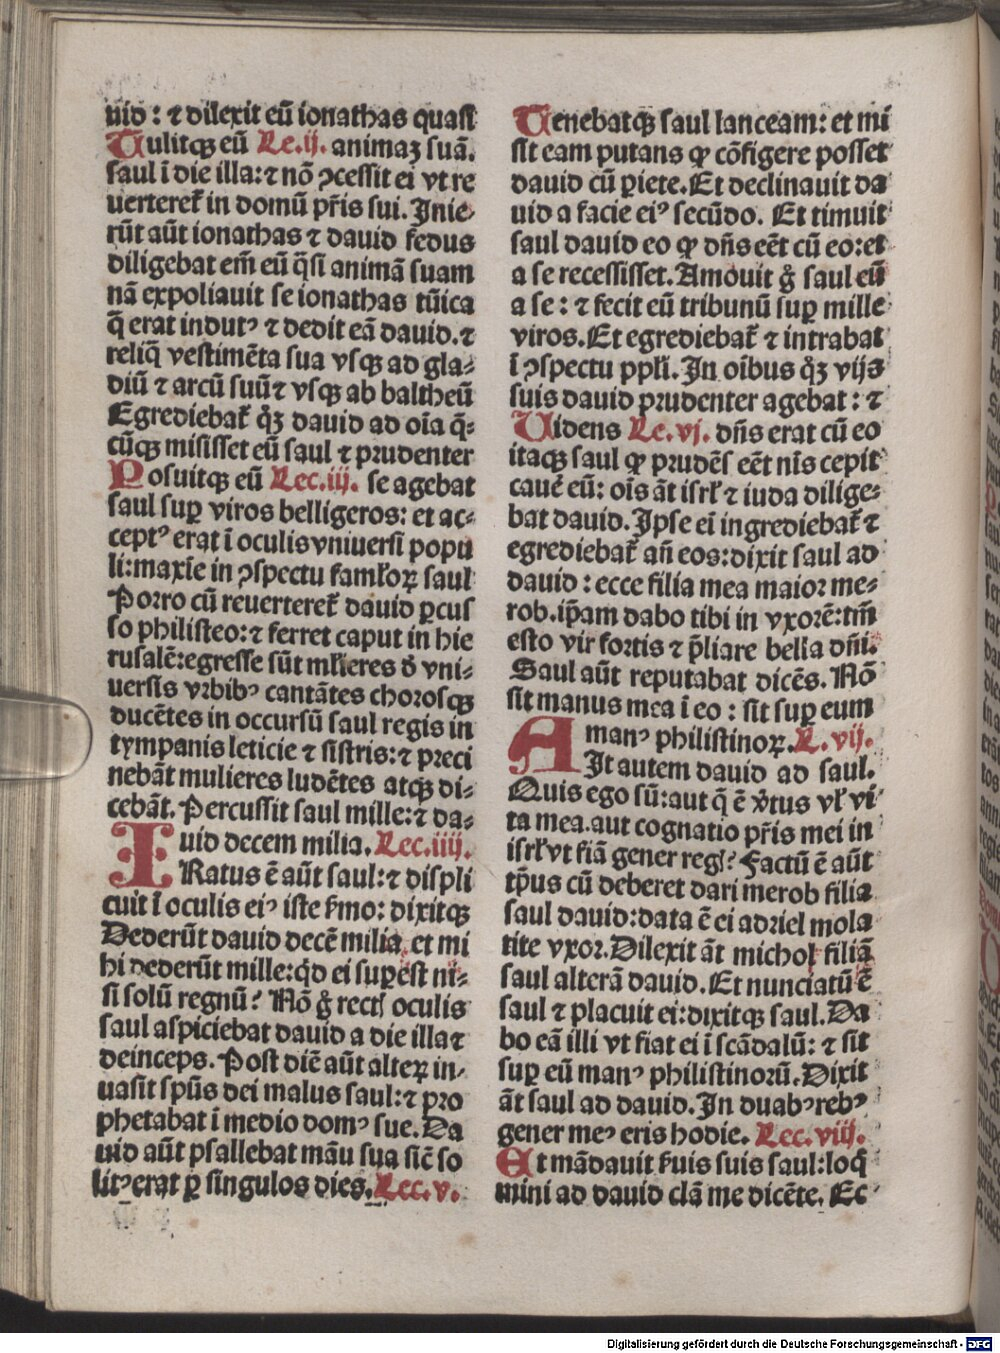 uid: ⁊ dilexit eū ionathas quasi
Tulitqꝫ eū Le.ij. animaꝫ suā.
saul ī die illa: ⁊ nō ꝯcessit ei vt re
uerteret̄ in domū p̄ris sui. Inie-
rūt aūt ionathas ⁊ dauid fedus
diligebat em̄ eū q̄si animā suam
nā expoliauit se ionathas tūica
q̄ erat indutꝰ ⁊ dedit eā dauid. ⁊
reliq̄ vestimēta sua vsqꝫ ad gla-
diū ⁊ arcū suū ⁊ vsqꝫ ab baltheū
Egrediebat̄ qͦꝫ dauid ad oīa q̄-
cūqꝫ misisset eū saul ⁊ prudenter
Posuitqꝫ eū Lec.iij. se agebat
saul suꝑ viros belligeros: et ac-
ceptꝰ erat ī oculis vniuersi popu
li: maxīe in ꝯspectu famƚoꝝ saul
Porro cū reuerteret̄ dauid ꝑcus
so philisteo: ⁊ ferret caput in hie
rusalē: egresse sūt mƚieres ď vni-
uersis vrbibꝰ cantātes chorosqꝫ
ducētes in occursū saul regis in
tympanis leticie ⁊ sistris: ⁊ preci
nebāt mulieres ludētes atqꝫ di-
cebāt. Percussit saul mille: ⁊ da-
uid decem milia. Lec.iiij.
IRatus ē aūt saul: ⁊ displi
cuit ī oculis eiꝰ iste ẜmo: dixitqꝫ
Dederūt dauid decē milia et mi
hi dederūt mille: qd̄ ei suꝑest ni-
si solū regnū? Nō gͦ rectꝭ oculis
saul aspiciebat dauid a die illa ⁊
deinceps. Post diē aūt alteꝝ in-
uasit sp̄us dei malus saul: ⁊ pro
phetabat ī medio domꝰ sue. Da
uid aūt psallebat māu sua sic̄ so
litꝰ erat ꝑ singulos dies. Lec.v.
Tenebatqꝫ saul lanceam: et mi
sit eam putans ꝙ cōfigere posset
dauid cū ꝑiete. Et declinauit da
uid a facie eiꝰ secūdo. Et timuit
saul dauid eo ꝙ dn̄s eēt cū eo: et
a se recessisset. Amouit gͦ saul eū
a se: ⁊ fecit eū tribunū suꝑ mille
viros. Et egrediebat̄ ⁊ intrabat
ī ꝯspectu ppƚi. In oībus qͦꝫ vijs
suis dauid prudenter agebat: ⁊
Uidens Le.vj. dn̄s erat cū eo
itaqꝫ saul ꝙ prudēs eēt nīs cepit
cauē eū: oīs āt isrƚ ⁊ iuda dilige-
bat dauid. Ipse ei ingrediebat̄ ⁊
egrediebat̄ añ eos: dixit saul ad
dauid: ecce filia mea maior me-
rob. ip̄am dabo tibi in vxorē: tm̄
esto vir fortis ⁊ p̄liare bella dn̄i.
Saul aūt reputabat dicēs. Nō
sit manus mea ī eo: sit suꝑ eum
manꝰ philistinoꝝ. L.vij.
AIt autem dauid ad saul.
Quis ego sū: aut q̄ ē v̾tus vƚ vi
ta mea. aut cognatio p̄ris mei in
isrƚ vt fiā gener regꝭ? Factū ē aūt
tp̄us cū deberet dari merob filia
saul dauid: data ē ei adriel mola
tite vxor. Dilexit āt michol filiā
saul alterā dauid. Et nunciatū ē
saul ⁊ placuit ei: dixitqꝫ saul. Da
bo eā illi vt fiat ei ī scādalū: ⁊ sit
suꝑ eū manꝰ philistinorū. Dixit
āt saul ad dauid. In duabꝰ rebꝰ
gener meꝰ eris hodie. Lec.viij.
Et mādauit ẜuis suis saul: loq̄
mini ad dauid clā me dicēte. Ec
Digitalisierung gefördert durch die Deutsche Forschungsgemeinschaft - DFG